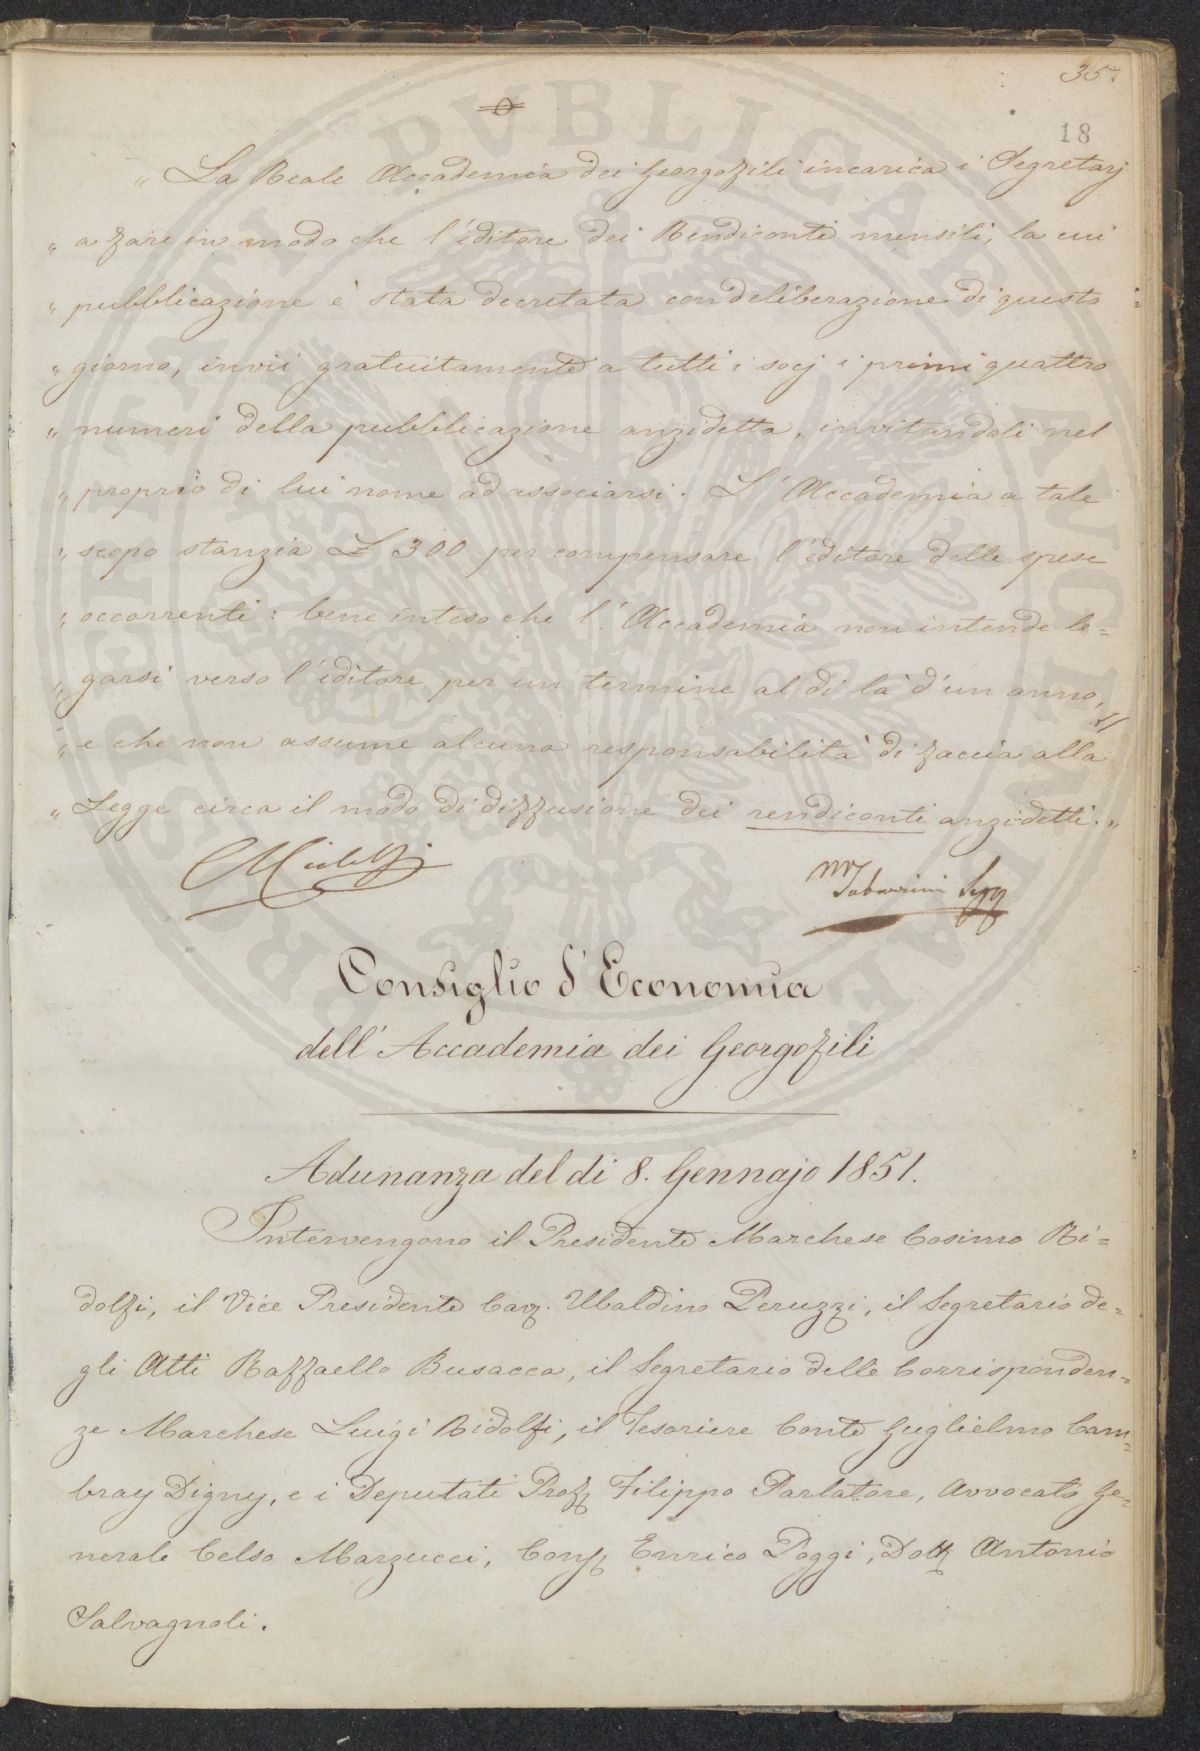 35.
18
„ La Reale Accademia dei Georgofili incarica i Segretarj
„ a fare in modo che l'editore dei Rendiconti mensili, la cui
„ pubblicazione è stata decretata con deliberazione di questo
„ giorno, invii gratuitamente a tutti i socj i primi quattro
„ numeri della pubblicazione anzidetta, invitandoli nel
„ proprio di lui nome ad associarsi. L'Accademia a tale
„ scopo stanzia £ 300 per compensare l'editore delle spese
„ occorrenti: bene inteso che l'Accademia non intende le=
„ garsi verso l'editore per un termine al di là d'un anno,
„ e che non assume alcuna responsabilità di faccia alla
„ Legge circa il modo di diffusione dei rendiconti anzidetti. „
Tabarrini Seg
Consiglio d'Economia
dell'Accademia dei Georgofili
Adunanza del di 8. Gennajo 1851.
Intervengono il Presidente Marchese Cosimo Ri=
dolfi, il Vice Presidente Cav. Ubaldino Peruzzi, il Segretario de=
gli Atti Raffaello Busacca, il Segretario delle Corrisponden=
ze Marchese Luigi Ridolfi, il Tesoriere Conte Guglielmo Cam=
bray Digny, e i Deputati Prof. Filippo Parlatore, Avvocato Ge=
nerale Celso Marzucci, Cons. Enrico Poggi, Dott. Antonio
Salvagnoli.